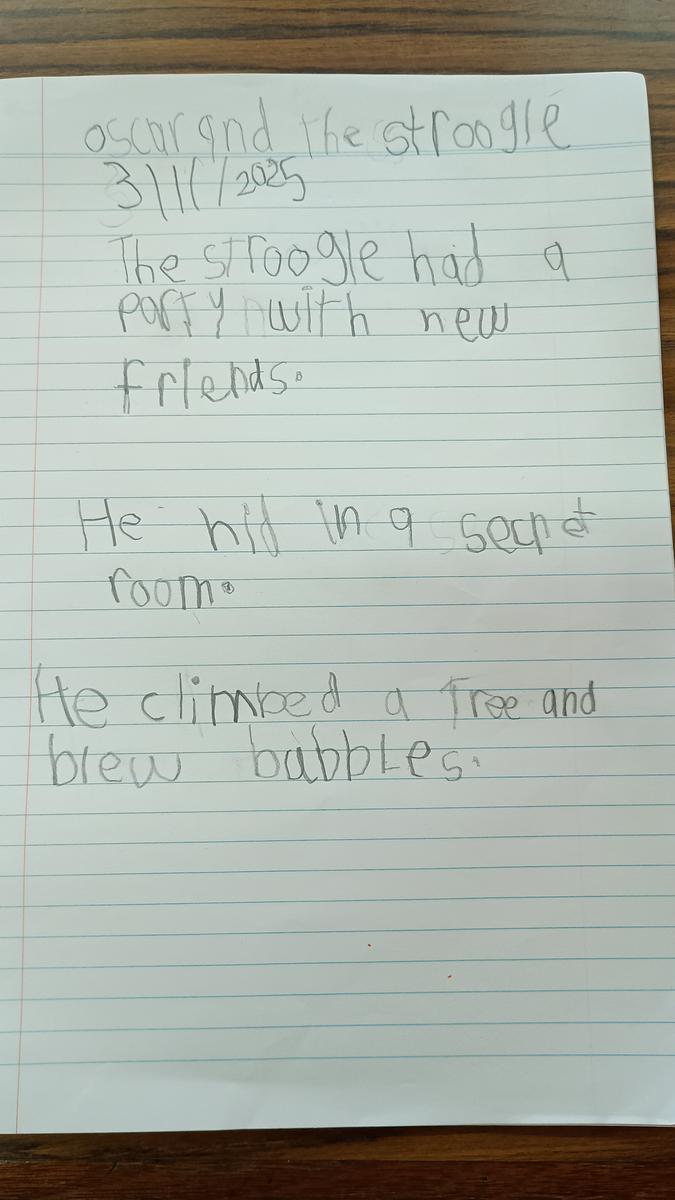 oscar and the stroogle
3\11/2025
The stroogle had a
party with new
friends.
He hid in a secret
room.
He climbed a Tree and
blew babbles.